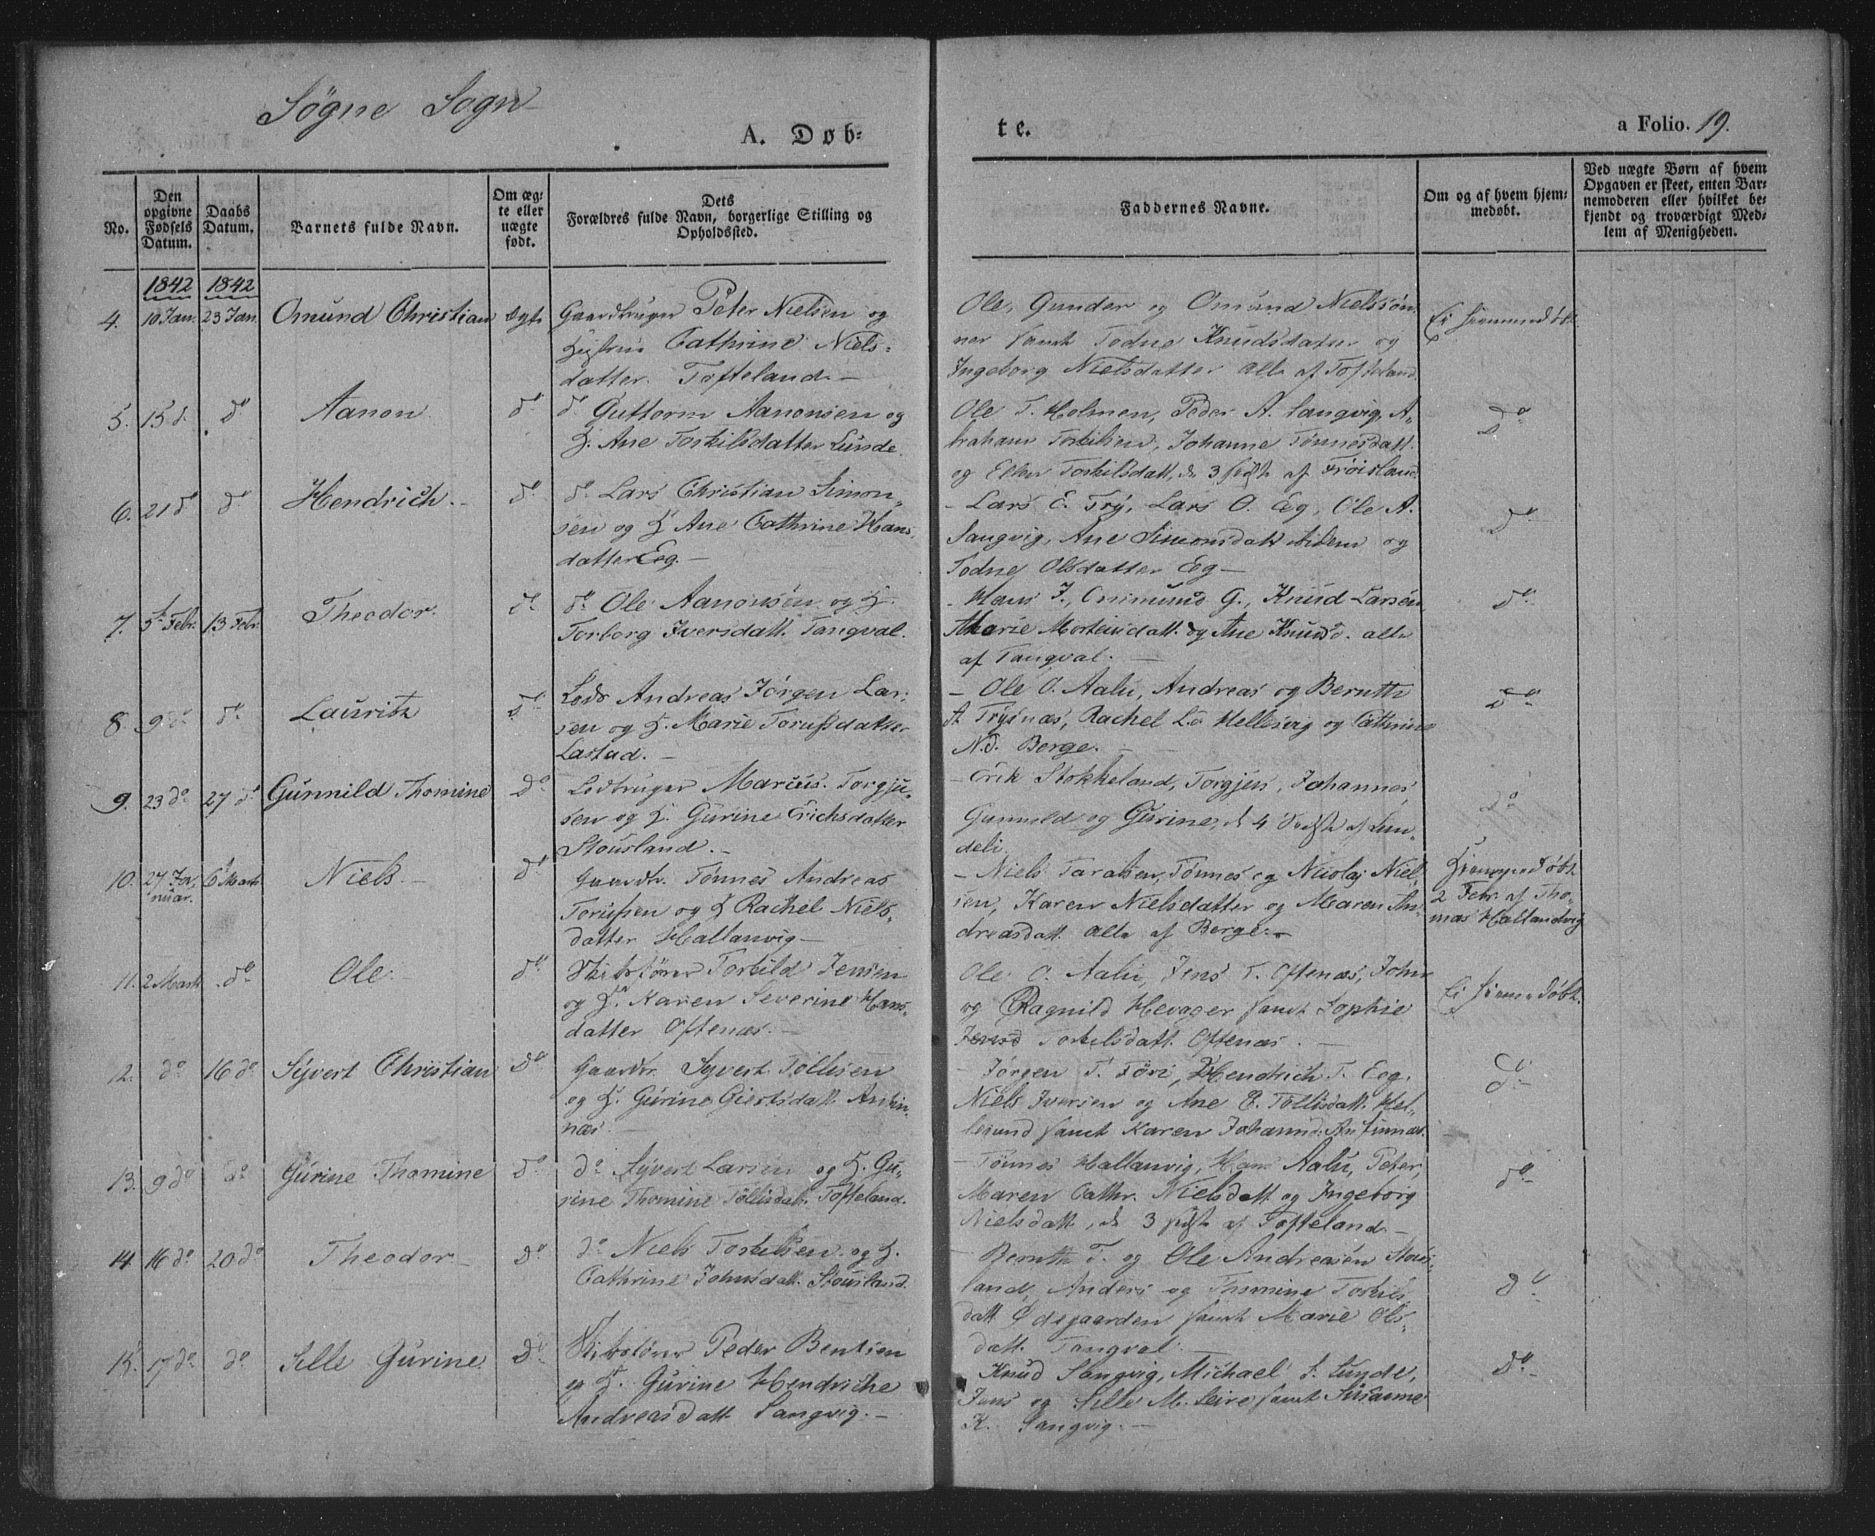 Søgne Sogn
A. Døb-
te.
a Folio. 19.
No.
Den opgivne Fødsels Datum.
Daabs Datum.
Barnets fulde Navn.
Om ægte eller uægte født.
Dets
Forældres fulde Navn, borgerlige Stilling og
Opholdssted.
Faddernes Navne.
Om og af hvem hjem-
medøbt.
Ved uægte Børn af hvem
Opgaven er skeet, enten Bar-
nemoderen eller hvilket be-
kjendt og troværdigt Med-
lem af Menigheden.
1842 1842
4. 10 Jan. 23 Jan. Omund Christian ægte Gaardbruger Peter Nielsen og
Cathrine Niels-
datter Tofteland.
Ole, Gunder og Omund Nielssøn-
ner samt Todne Knudsdatter og
Ingeborg Nielsdatter alle af Tofteland.
Ei hjemmedøbt.
5. 15 d. do Aanon. do do Guttorm Aanonsen og
H. Ane Torkilsdatter Lunde.
Ole T. Holmen, Peder A. Langvig, A-
braham Torkilsen, Johanne Tønnesdatt.
og Ellen Torkilsdatt. de 3 sidste af Frøisland
Do
6. 21 do do Hendrich do do Lars Christian Simon-
sen og H. Ane Cathrine Hans-
datter Eeg.
Lars E. Try, Lars O. Eeg, Ole A.
Langvig, Ane Simonsdatt og
Todne Olsdatter Eeg
Do
7. 5t Febr. 13 Febr. Theodor. do do Ole Aanonsen og H.
Torborg Iversdatt. Tangval.
Hans J., Omund G., Knud Larsen
Marie Mortensdatt. og Ane Knudsd. alle
af Tangval.
Do
8. 9 do do Lauritz do Lods Andreas Jørgen Lar-
sen og H. Marie Torusdatter
Lastad.
Ole O. Aalu, Andreas og Beruth
A Trysnæs, Rachel La Hellesvig og Cathrine
N.d. Berge.
Do
9. 23 do 27 do Gunnild Thomine Do Lodbruger Marcus Torgju-
sen og H. Gurine Erichsdatter
Stousland.
Erik Stokkeland, Torgjus, Johannes,
Gunnild og Gurine, de 4 sidste af Lun-
deli.
do
10. 27 Ja-
nuar. 6 Marts Niels. do Gaardbr. Tønnes Andreas
Torusen og H Rachel Niels-
datter Hallanvig
Niels Taralsen, Tønnes og Nicolaj Niel-
sen, Karen Nielsdatter og Maren An-
dreasdatt. alle af Berge.
Hjemmedøbt
2 Febr. af Tho-
mas Hallandvig
11. 2 Marts do Ole. do Torkild Jensen
og H. Karen Severine Hans-
datter Oftenæs.
Ole O. Aalu, Jens T. Oftenæs, John
og Ragnild Hevager samt Sophie
Torkilsdatt. Oftenæs.
Ei hjemmedøbt.
12. do 16 do Syvert Christian do Gaardbr. Syvert Tollisen
og H. Gurine Giertsdatt.
næs.
Jørgen T. Føre, Hendrich T. Eeg.
Niels Iversen og Ane E. Tollisdatt. Hel-
lesund samt Karen
do
13. 9 do do Gurine Thomine do do Syvert Larsen og H. Gu-
rine Thomine Tollisdatt. Tofteland.
Tønnes Hallanvig, Hans Aalu, Peter,
Maren Cathr. Nielsdatt og Ingeborg
Nielsdatt, de 3 sidste af Tofteland.
do
14. 16 do 20 do Theodor do do Niels Torkilsen og H.
Cathrine Johnsdatt. Stousland.
Beruth T. og Ole Andreasen Stous-
land, Anders og Thomine Torkils-
datt Ødegaarden samt Marie Ols-
datt. Tangval.
do
15. 17 do do Sille Gurine do Peder Bentsen
og H. Gurine Hendrikke
Andreasdatt. Langvig.
Knud Langvig, Michael Lunde,
Jens og Sille M. Leire samt Susanne
K. Langvig.
Do